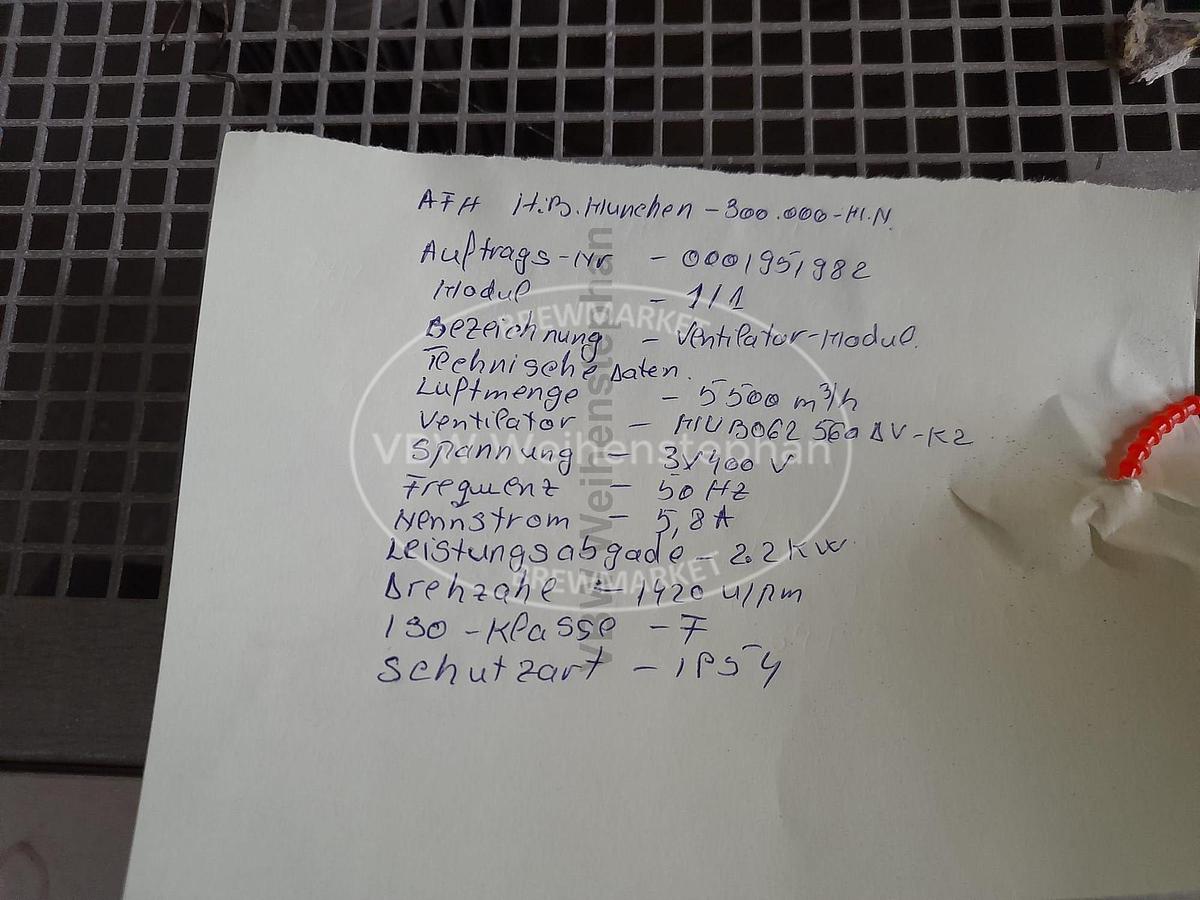 AFH H.B. München - 300.000 - Hl.N.
Auftrags-Nr - 0001951982
Modul - 1/1
Bezeichnung - Ventilator-Modul.
Technische Daten.
Luftmenge - 5500 m³/h
Ventilator - MUB062 560 DV-K2
Spannung - 3x400 V
Frequenz - 50 Hz
Nennstrom - 5,8 A
Leistungsabgade - 2.2 KW
Drehzahl - 1420 U/Rm
ISO - Klasse - F
Schutzart - IP54
BREWMARKET
VBW Weihenstephan
BREWMARKET
VBW Weihenstephan